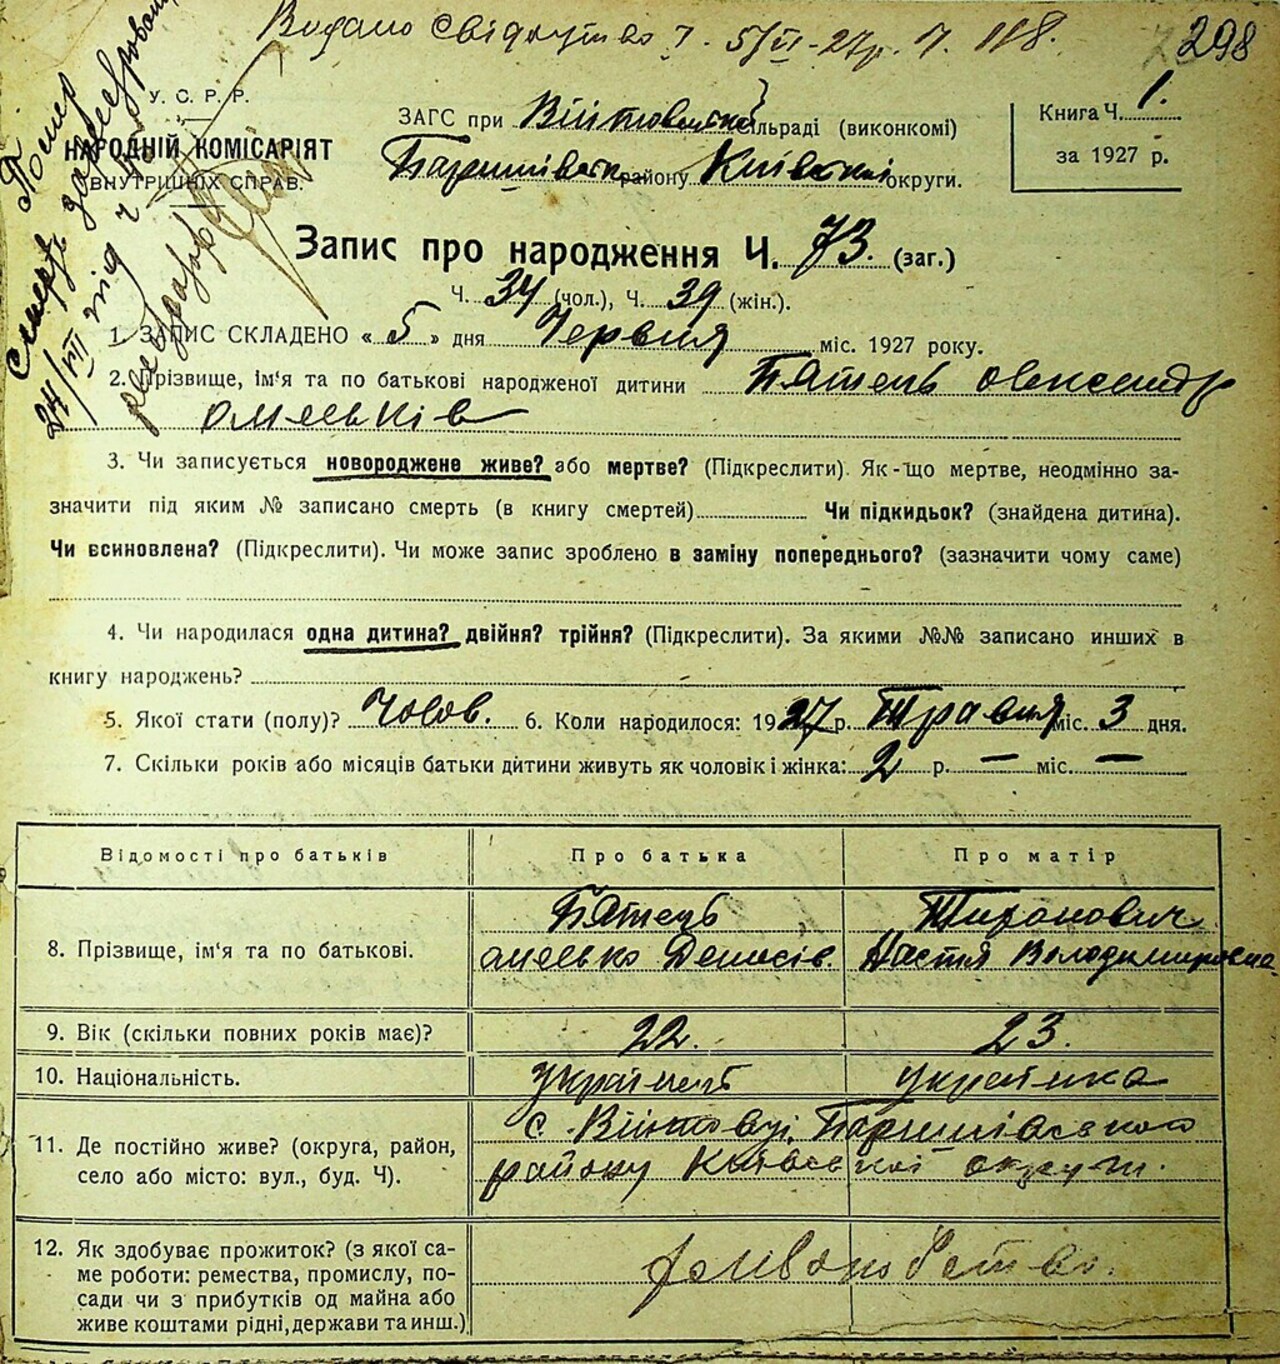 Видано свідоцтво 5/VI-27р. 298
Помер
Смерть зареєстрована
24/VII під ч.
У. С. Р. Р.
НАРОДНІЙ КОМІСАРІЯТ
ВНУТРІШНІХ СПРАВ.
ЗАГС при Війтовецькій сільраді (виконкомі)
Баришівськ району Київської округи.
Книга Ч. 1.
за 1927 р.
Запис про народження Ч. 73. (заг.)
Ч. 34 (чол.), Ч. 39 (жін.).
1. ЗАПИС СКЛАДЕНО «5» дня Червня міс. 1927 року.
2. Прізвище, ім'я та по батькові народженої дитини Пятець Олександр
Омельків
3. Чи записується новороджене живе? або мертве? (Підкреслити). Як-що мертве, неодмінно за-
значити під яким № записано смерть (в книгу смертей) Чи підкидьок? (знайдена дитина).
Чи всиновлена? (Підкреслити). Чи може запис зроблено в заміну попереднього? (зазначити чому саме)
4. Чи народилася одна дитина? двійня? трійня? (Підкреслити). За якими №№ записано инших в
книгу народжень?
5. Якої стати (полу)? Чолов. 6. Коли народилося: 1927 р. Травня міс. 3 дня.
7. Скільки років або місяців батьки дитини живуть як чоловік і жінка: 2 р. — міс. —
Відомості про батьків Про батька Про матір
8. Прізвище, ім'я та по батькові.
Пятець
Омелько Денисів.
Тиронович
Настя Володимировна
9. Вік (скільки повних років має)? 22. 23.
10. Національність. українець українка
11. Де постійно живе? (округа, район,
село або місто: вул., буд. Ч).
с. Війтовці, Баришівського
району Київської округи.
12. Як здобуває прожиток? (з якої са-
ме роботи: ремества, промислу, по-
сади чи з прибутків од майна або
живе коштами рідні, держави та инш.)
хліборобство.